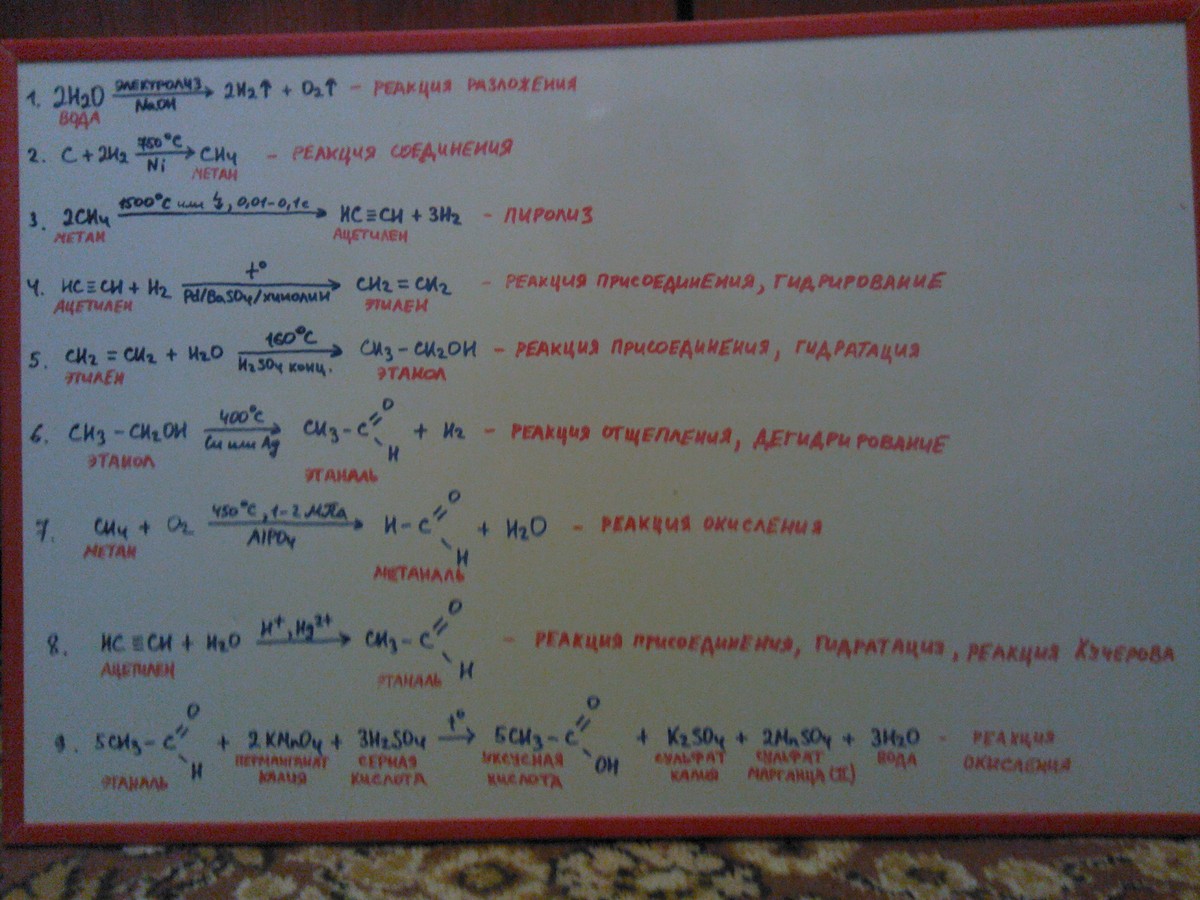 1. 2H2O ЭЛЕКТРОЛИЗ NaOH → 2H2↑ + O2↑ - РЕАКЦИЯ РАЗЛОЖЕНИЯ
ВОДА
2. C + 2H2 750°C Ni → CH4 - РЕАКЦИЯ СОЕДИНЕНИЯ
МЕТАН
3. 2CH4 1500°C или ϟ, 0,01-0,1с → HC≡CH + 3H2 - ПИРОЛИЗ
МЕТАН АЦЕТИЛЕН
4. HC≡CH + H2 t° Pd/BaSO4/хинолин → CH2=CH2 - РЕАКЦИЯ ПРИСОЕДИНЕНИЯ, ГИДРИРОВАНИЕ
АЦЕТИЛЕН ЭТИЛЕН
5. CH2=CH2 + H2O 160°C H2SO4 конц. → CH3-CH2OH - РЕАКЦИЯ ПРИСОЕДИНЕНИЯ, ГИДРАТАЦИЯ
ЭТИЛЕН ЭТАНОЛ
6. CH3-CH2OH 400°C Cu или Ag → CH3-C=O-H + H2 - РЕАКЦИЯ ОТЩЕПЛЕНИЯ, ДЕГИДРИРОВАНИЕ
ЭТАНОЛ ЭТАНАЛЬ
7. CH4 + O2 450°C, 1-2 МПа AlPO4 → H-C=O-H + H2O - РЕАКЦИЯ ОКИСЛЕНИЯ
МЕТАН МЕТАНАЛЬ
8. HC≡CH + H2O H+, Hg2+ → CH3-C=O-H - РЕАКЦИЯ ПРИСОЕДИНЕНИЯ, ГИДРАТАЦИЯ, РЕАКЦИЯ КУЧЕРОВА
АЦЕТИЛЕН ЭТАНАЛЬ
9. 5CH3-C=O-H + 2KMnO4 + 3H2SO4 t° → 5CH3-C=O-OH + K2SO4 + 2MnSO4 + 3H2O - РЕАКЦИЯ
ЭТАНАЛЬ ПЕРМАНГАНАТ СЕРНАЯ УКСУСНАЯ СУЛЬФАТ СУЛЬФАТ ВОДА ОКИСЛЕНИЯ
КАЛИЯ КИСЛОТА КИСЛОТА КАЛИЯ МАРГАНЦА (II)